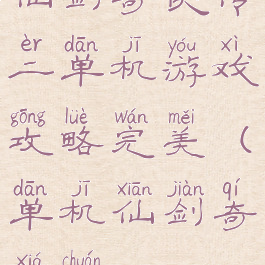 仙剑奇侠传
èr dān jī yóu xì
二单机游戏
gōng lüè wán měi
攻略完美（
dān jī xiān jiàn qí
单机仙剑奇
xiá chuán